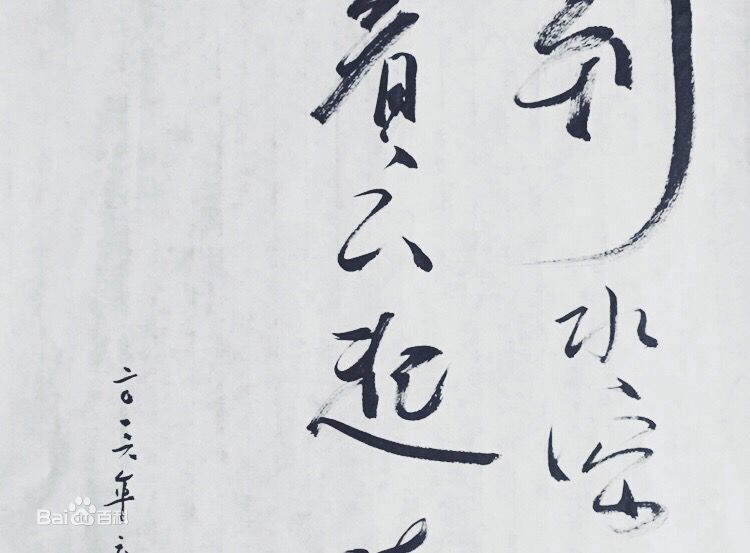 到水穷
看云起
二〇一六年
Bai du 百科